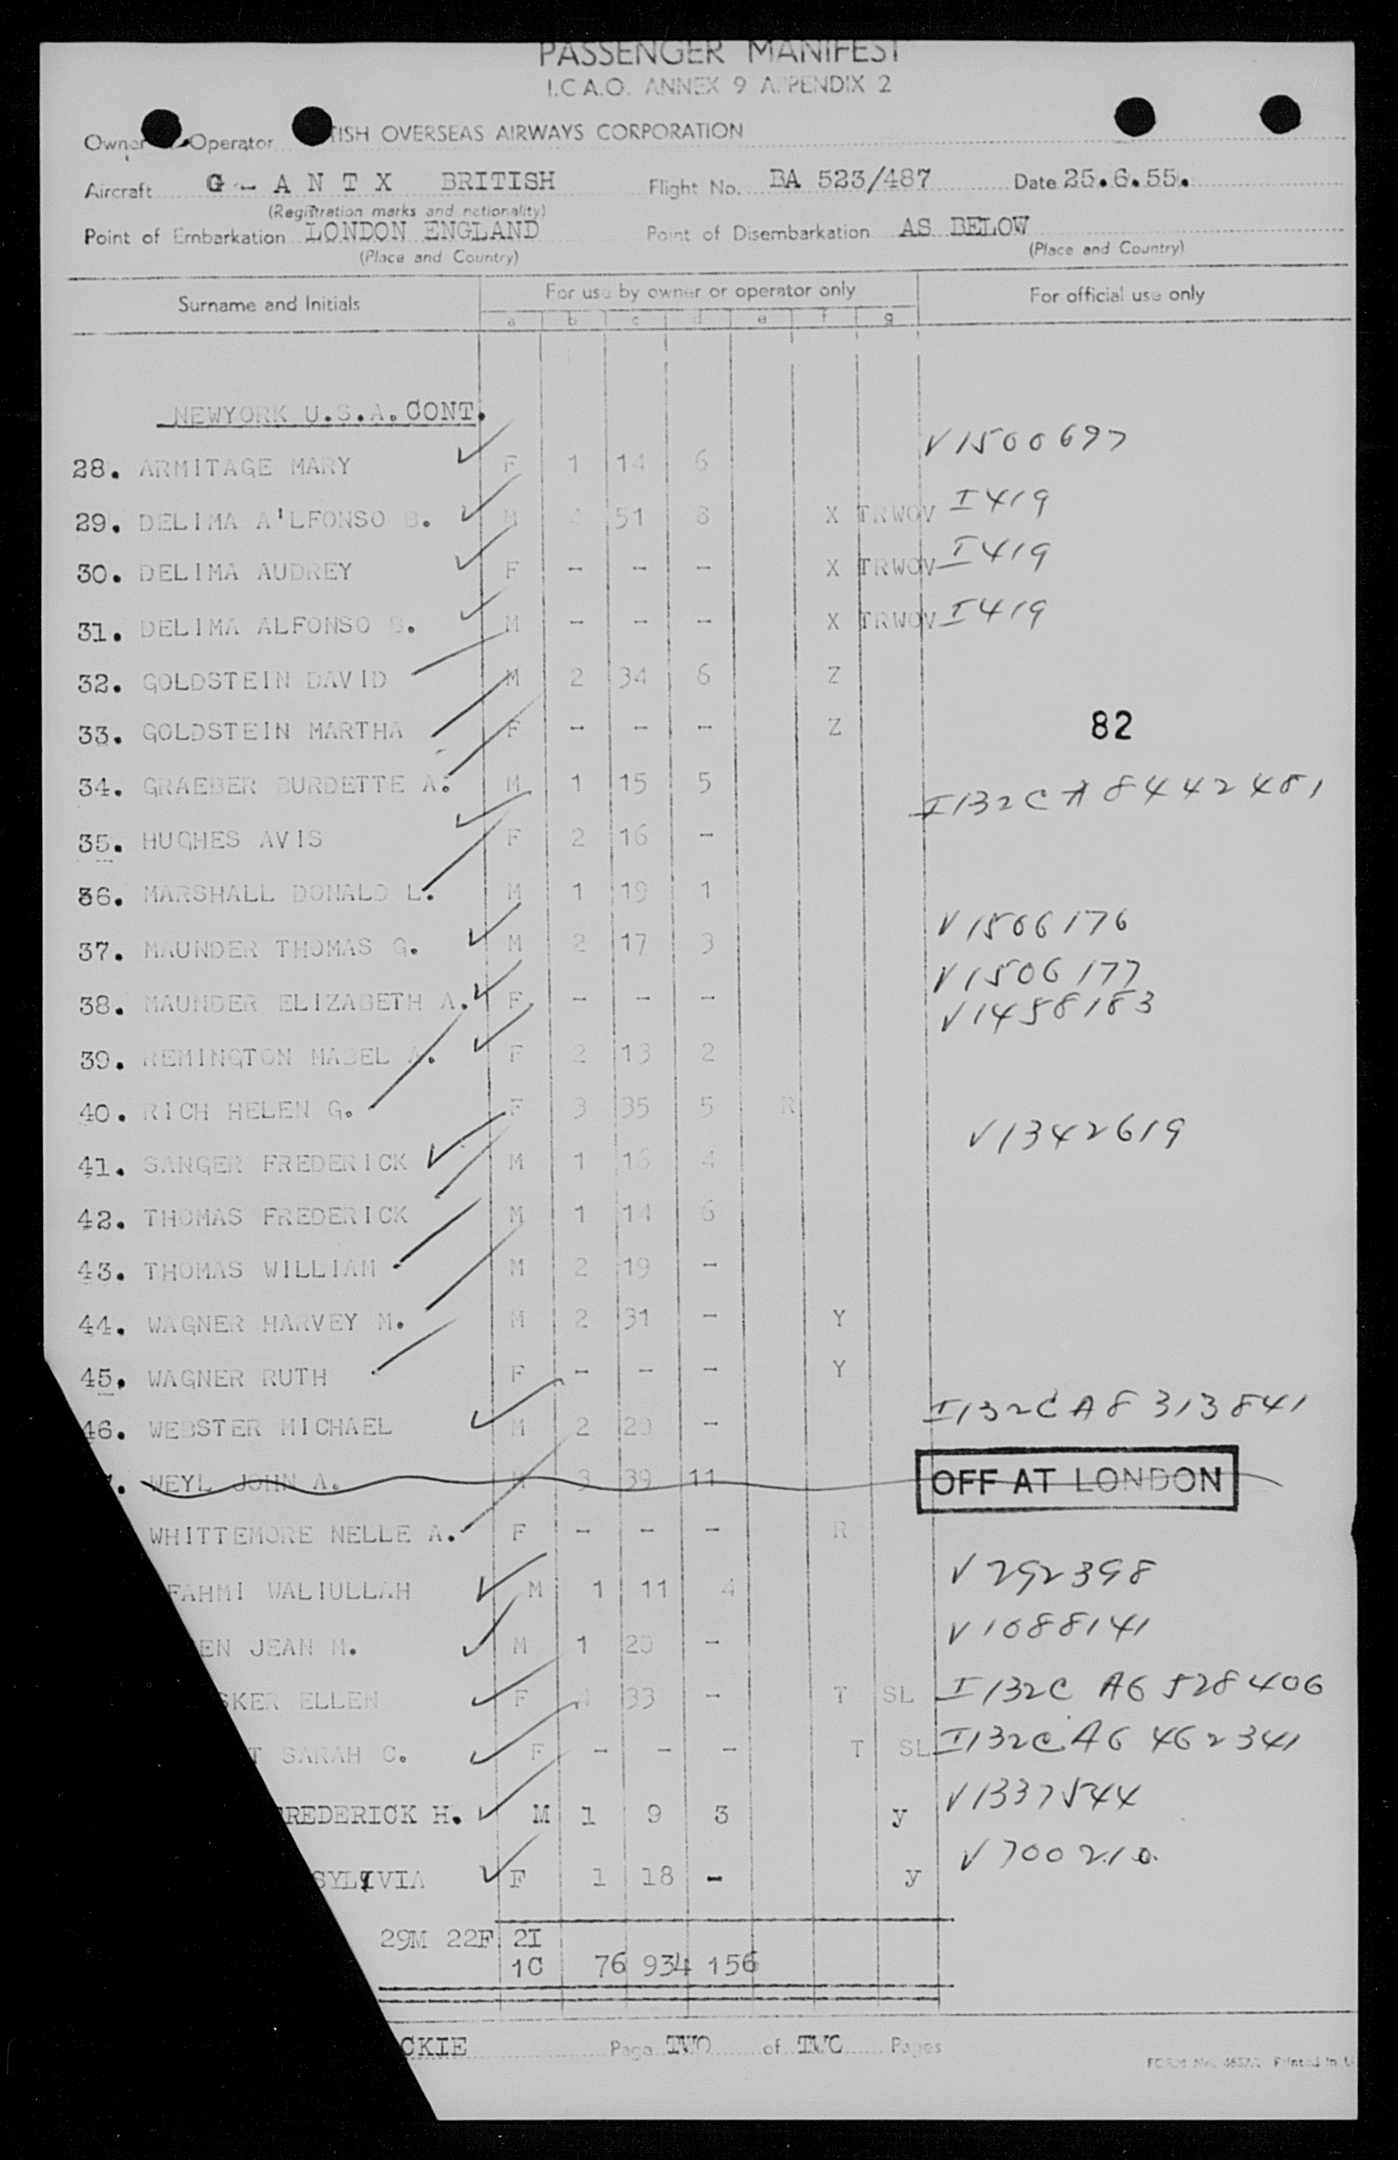 PASSENGER MANIFEST
I.C.A.O. ANNEX 9 APPENDIX 2
Owner Operator TISH OVERSEAS AIRWAYS CORPORATION
Aircraft G - A N T X BRITISH Flight No. BA 523/487 Date 25.6.55.
(Registration marks and nationality)
Point of Embarkation LONDON ENGLAND Point of Disembarkation AS BELOW
(Place and Country) (Place and Country)
Surname and Initials For use by owner or operator only For official use only
a b c d e f g
NEWYORK U.S.A. CONT.
28. ARMITAGE MARY F 1 14 6 V1500697
29. DELIMA A'LFONSO S. M 51 8 X TRWOV I419
30. DELIMA AUDREY F - - - X TRWOV I419
31. DELIMA ALFONSO S. M - - - X TRWOV I419
32. GOLDSTEIN DAVID M 2 34 6 Z
33. GOLDSTEIN MARTHA F - - - Z 82
34. GRAEBER BURDETTE A. M 1 15 5
35. HUGHES AVIS F 2 16 - I132C A8442481
36. MARSHALL DONALD L. M 1 19 1
37. MAUNDER THOMAS G. M 2 17 3 V1506176
38. MAUNDER ELIZABETH A. F - - - V1506177
39. REMINGTON MABEL A. F 2 13 2 V1458183
40. RICH HELEN G. F 3 35 5 R
41. SANGER FREDERICK M 1 16 4 V1342619
42. THOMAS FREDERICK M 1 14 6
43. THOMAS WILLIAM M 2 19 -
44. WAGNER HARVEY M. M 2 31 - Y
45. WAGNER RUTH F - - - Y
46. WEBSTER MICHAEL M 2 20 - I132C A8 313841
. WEYL JOHN A. M 3 39 11 OFF AT LONDON
WHITTEMORE NELLE A. F - - - R
FAHMI WALIULLAH M 1 11 4 V292398
EN JEAN M. M 1 20 - V1088141
SKER ELLEN F 33 - T SL I132C A6 528406
T SARAH C. F - - - T SL I132C A6 462341
REDERICK H. M 1 9 3 y V1337544
SYLVIA F 1 18 - y V700210
29M 22F 2I
1C 76 934 156
CKIE Page TWO of TWO Pages
FORM No. Printed in